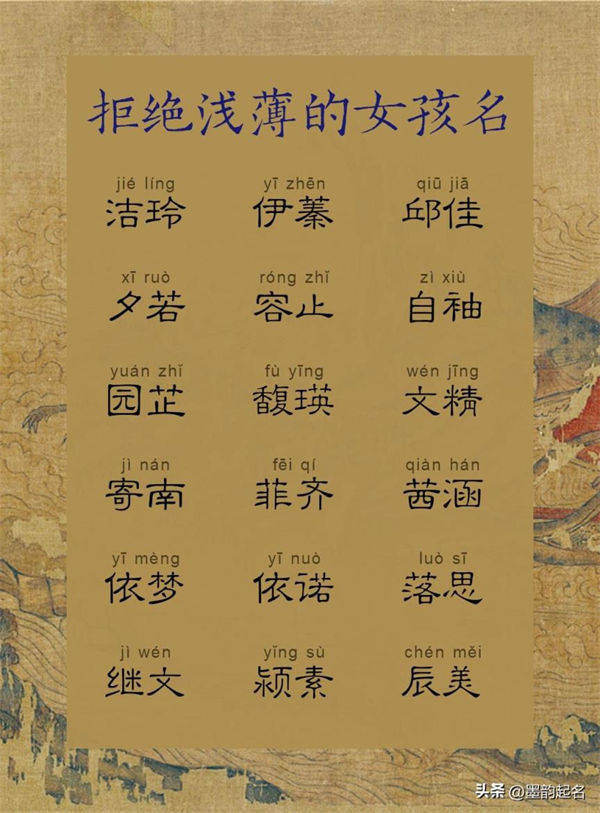 拒绝浅薄的女孩名
jié líng yī zhēn qiū jiā
洁玲 伊蓁 邱佳
xī ruò róng zhǐ zì xiù
夕若 容止 自袖
yuán zhǐ fù yīng wén jīng
园芷 馥瑛 文精
jì nán fēi qí qiàn hán
寄南 菲齐 茜涵
yī mèng yī nuò luò sī
依梦 依诺 落思
jì wén yǐng sù chén měi
继文 颍素 辰美
头条 @墨韵起名